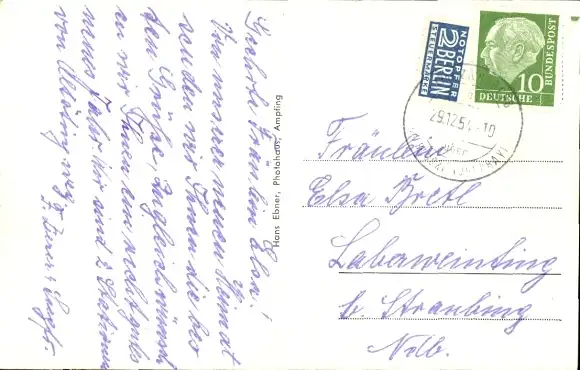 Geehrte Fräulein Elsa!
Von unserer neuen Heimat
senden wir Ihnen die bes
ten Grüße. Zugleich wünsch
en wir Ihnen ein recht gutes
neues Jahr. Wir sind 2 Stationen
von Altötting weg.
Hans Ebner, Photohaus, Ampfing
NOTOPFER
2 BERLIN
STEUERMARKE
10
DEUTSCHE
BUNDESPOST
29.12.54.-10
Fräulein
Elsa Bretl
Labaweinting
b. Straubing
Ndb.